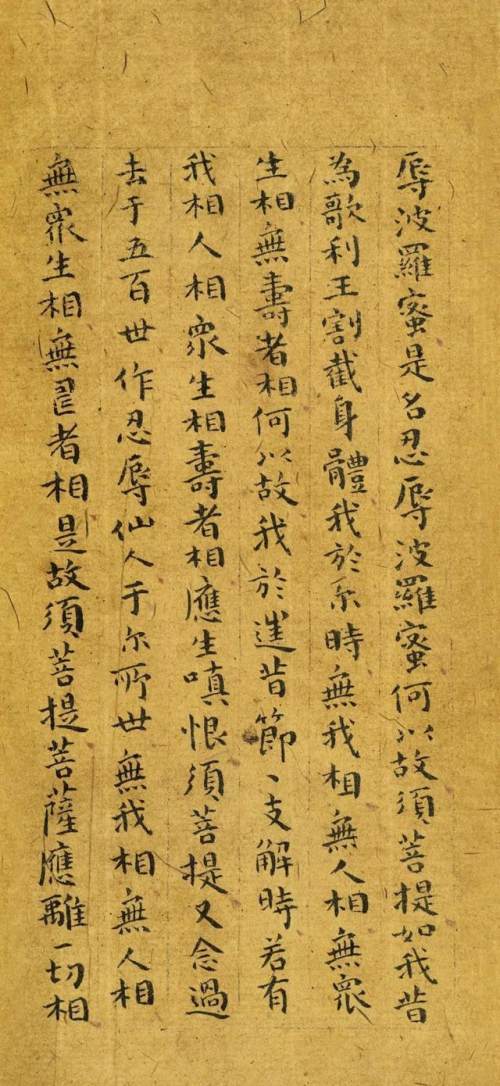 辱波羅蜜是名忍辱波羅蜜何以故須菩提如我昔
為歌利王割截身體我於尓時無我相無人相無眾
生相無壽者相何以故我於往昔節〻支解時若有
我相人相眾生相壽者相應生嗔恨須菩提又念過
去于五百世作忍辱仙人于尓所世無我相無人相
無眾生相無者相是故須菩提菩薩應離一切相